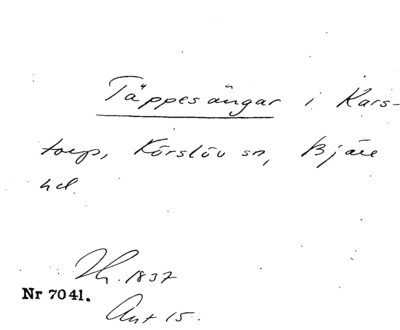 Täppesängar i Kars-
torp, Körslöv sn, Bjäre
hd
Th. 1837
Nr 7041.
Ant 15.